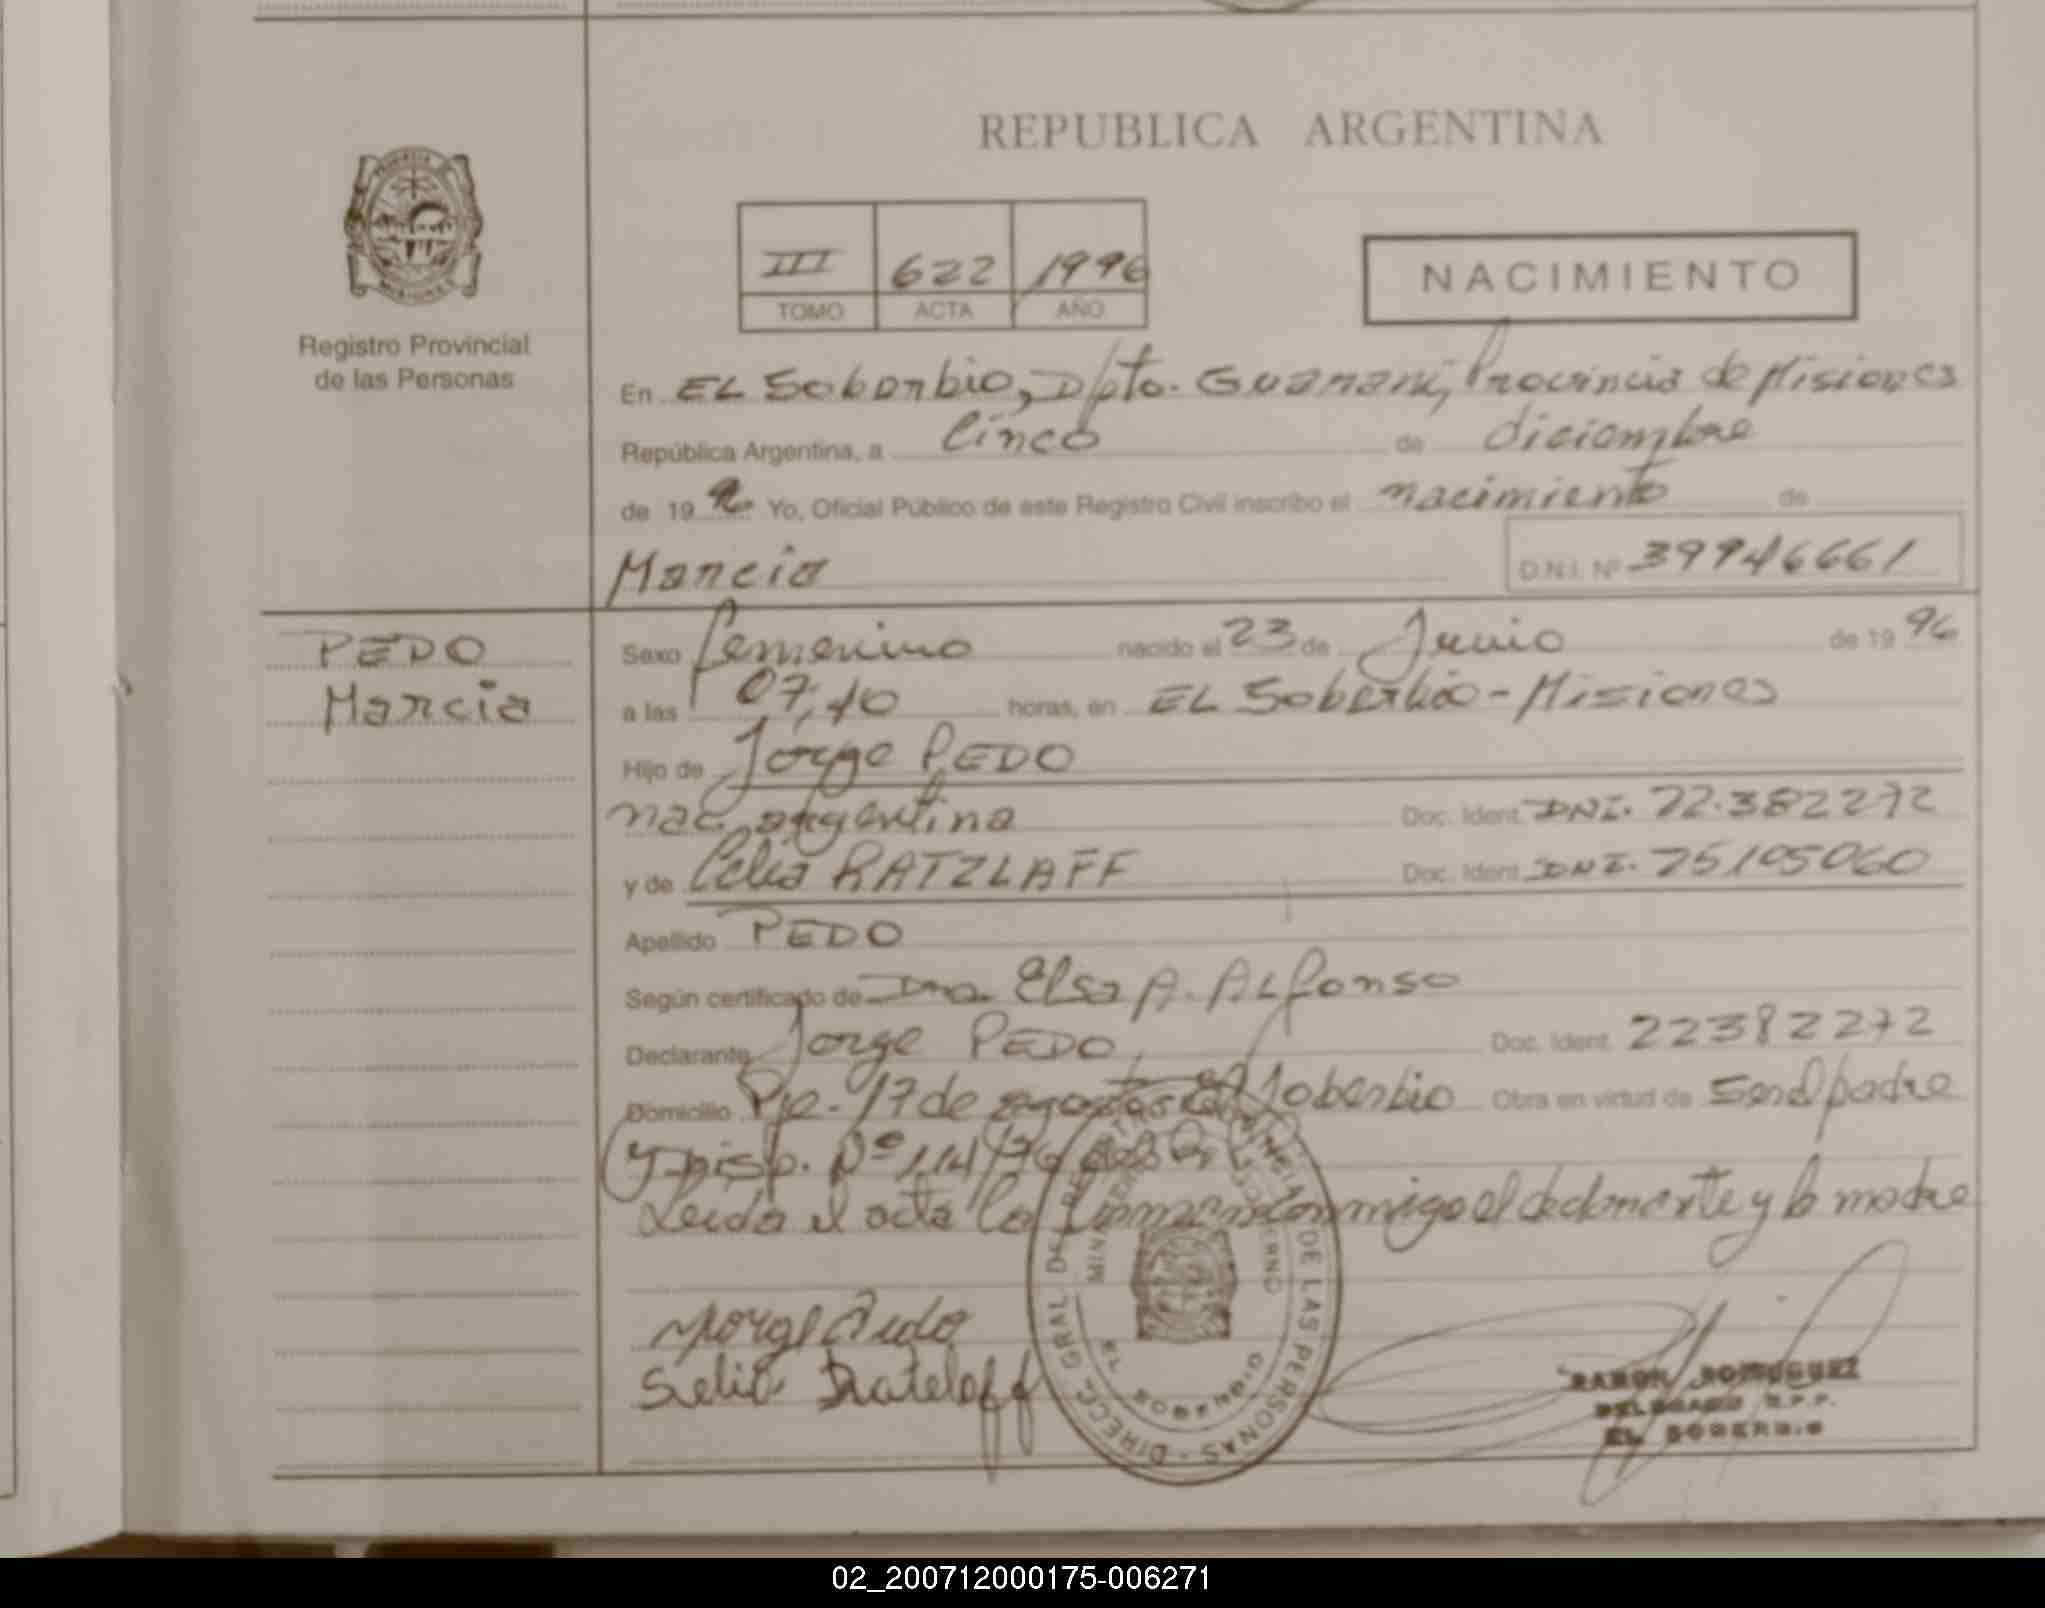 REPUBLICA ARGENTINA
III 622 1996
TOMO ACTA AÑO
NACIMIENTO
Registro Provincial
de las Personas
En EL Soberbio, Dpto. Guarani, Provincia de Misiones
República Argentina, a Cinco de diciembre
de 19 Yo, Oficial Público de este Registro Civil inscribo el nacimiento de
Marcia D.N.I. Nº 39946661
PEDO
Marcia
Sexo femenino nacido el 23 de Junio de 19 96
a las 07,10 horas, en EL Soberbio - Misiones
Hijo de Jorge PEDO
nac. argentina Doc. Ident. DNI. 22.382272
y de Celia RATZLAFF Doc. Ident. DNI. 25105060
Apellido PEDO
Según certificado de Dra. Elsa A. ALfonso
Declarante Jorge PEDO, Doc. Ident. 22382272
Domicilio Pje. 17 de agosto El Soberbio Obra en virtud de Ser el padre
y Disp. Nº 114/96
Leida el acta la firman conmigo el declarante y la madre
Jorge Pedo
Selia Rateloff
DIRECC. GRAL DE REGISTRO PROVINCIAL DE LAS PERSONAS
MINISTERIO DE GOBIERNO
EL SOBERBIO
RAMON RODRIGUEZ
DELEGADO R.P.P.
EL SOBERBIO
02_200712000175-006271